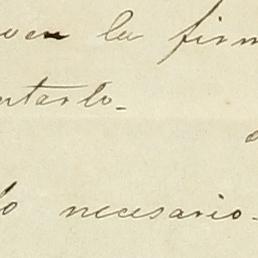 la firm
ntarlo.
lo necesario.